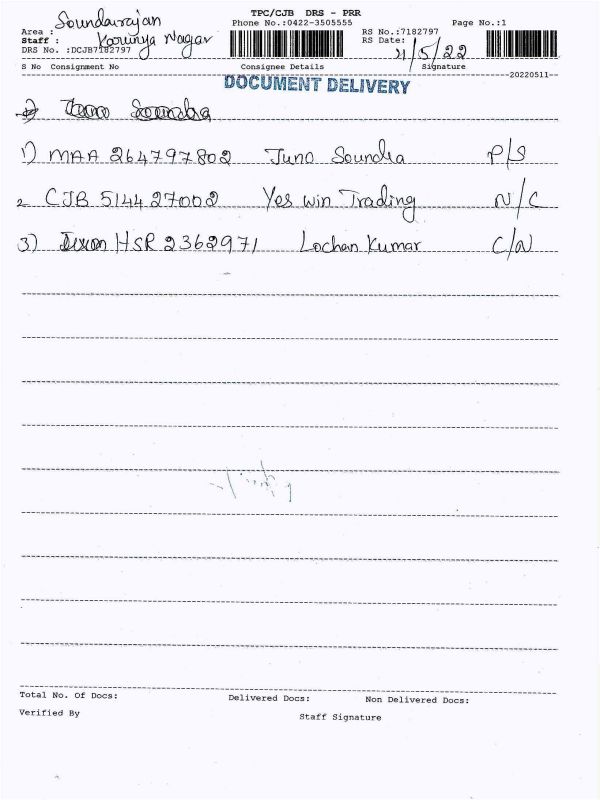 TPC/CJB DRS - PRR
Soundarajan
Area :
Phone No.:0422-3505555
Page No.:1
Staff : Karunya Nagar
RS No.:7182797
DRS No. :DCJB7182797
RS Date: 11/5/22
Signature
S No Consignment No Consignee Details
--20220511--
DOCUMENT DELIVERY
1) MAA 264797802 Juno Soundra P/S
2 CJB 514427002 Yes win Trading N/C
3) HSR 2362971 Lochan Kumar C/N
Total No. Of Docs: Delivered Docs: Non Delivered Docs:
Verified By
Staff Signature